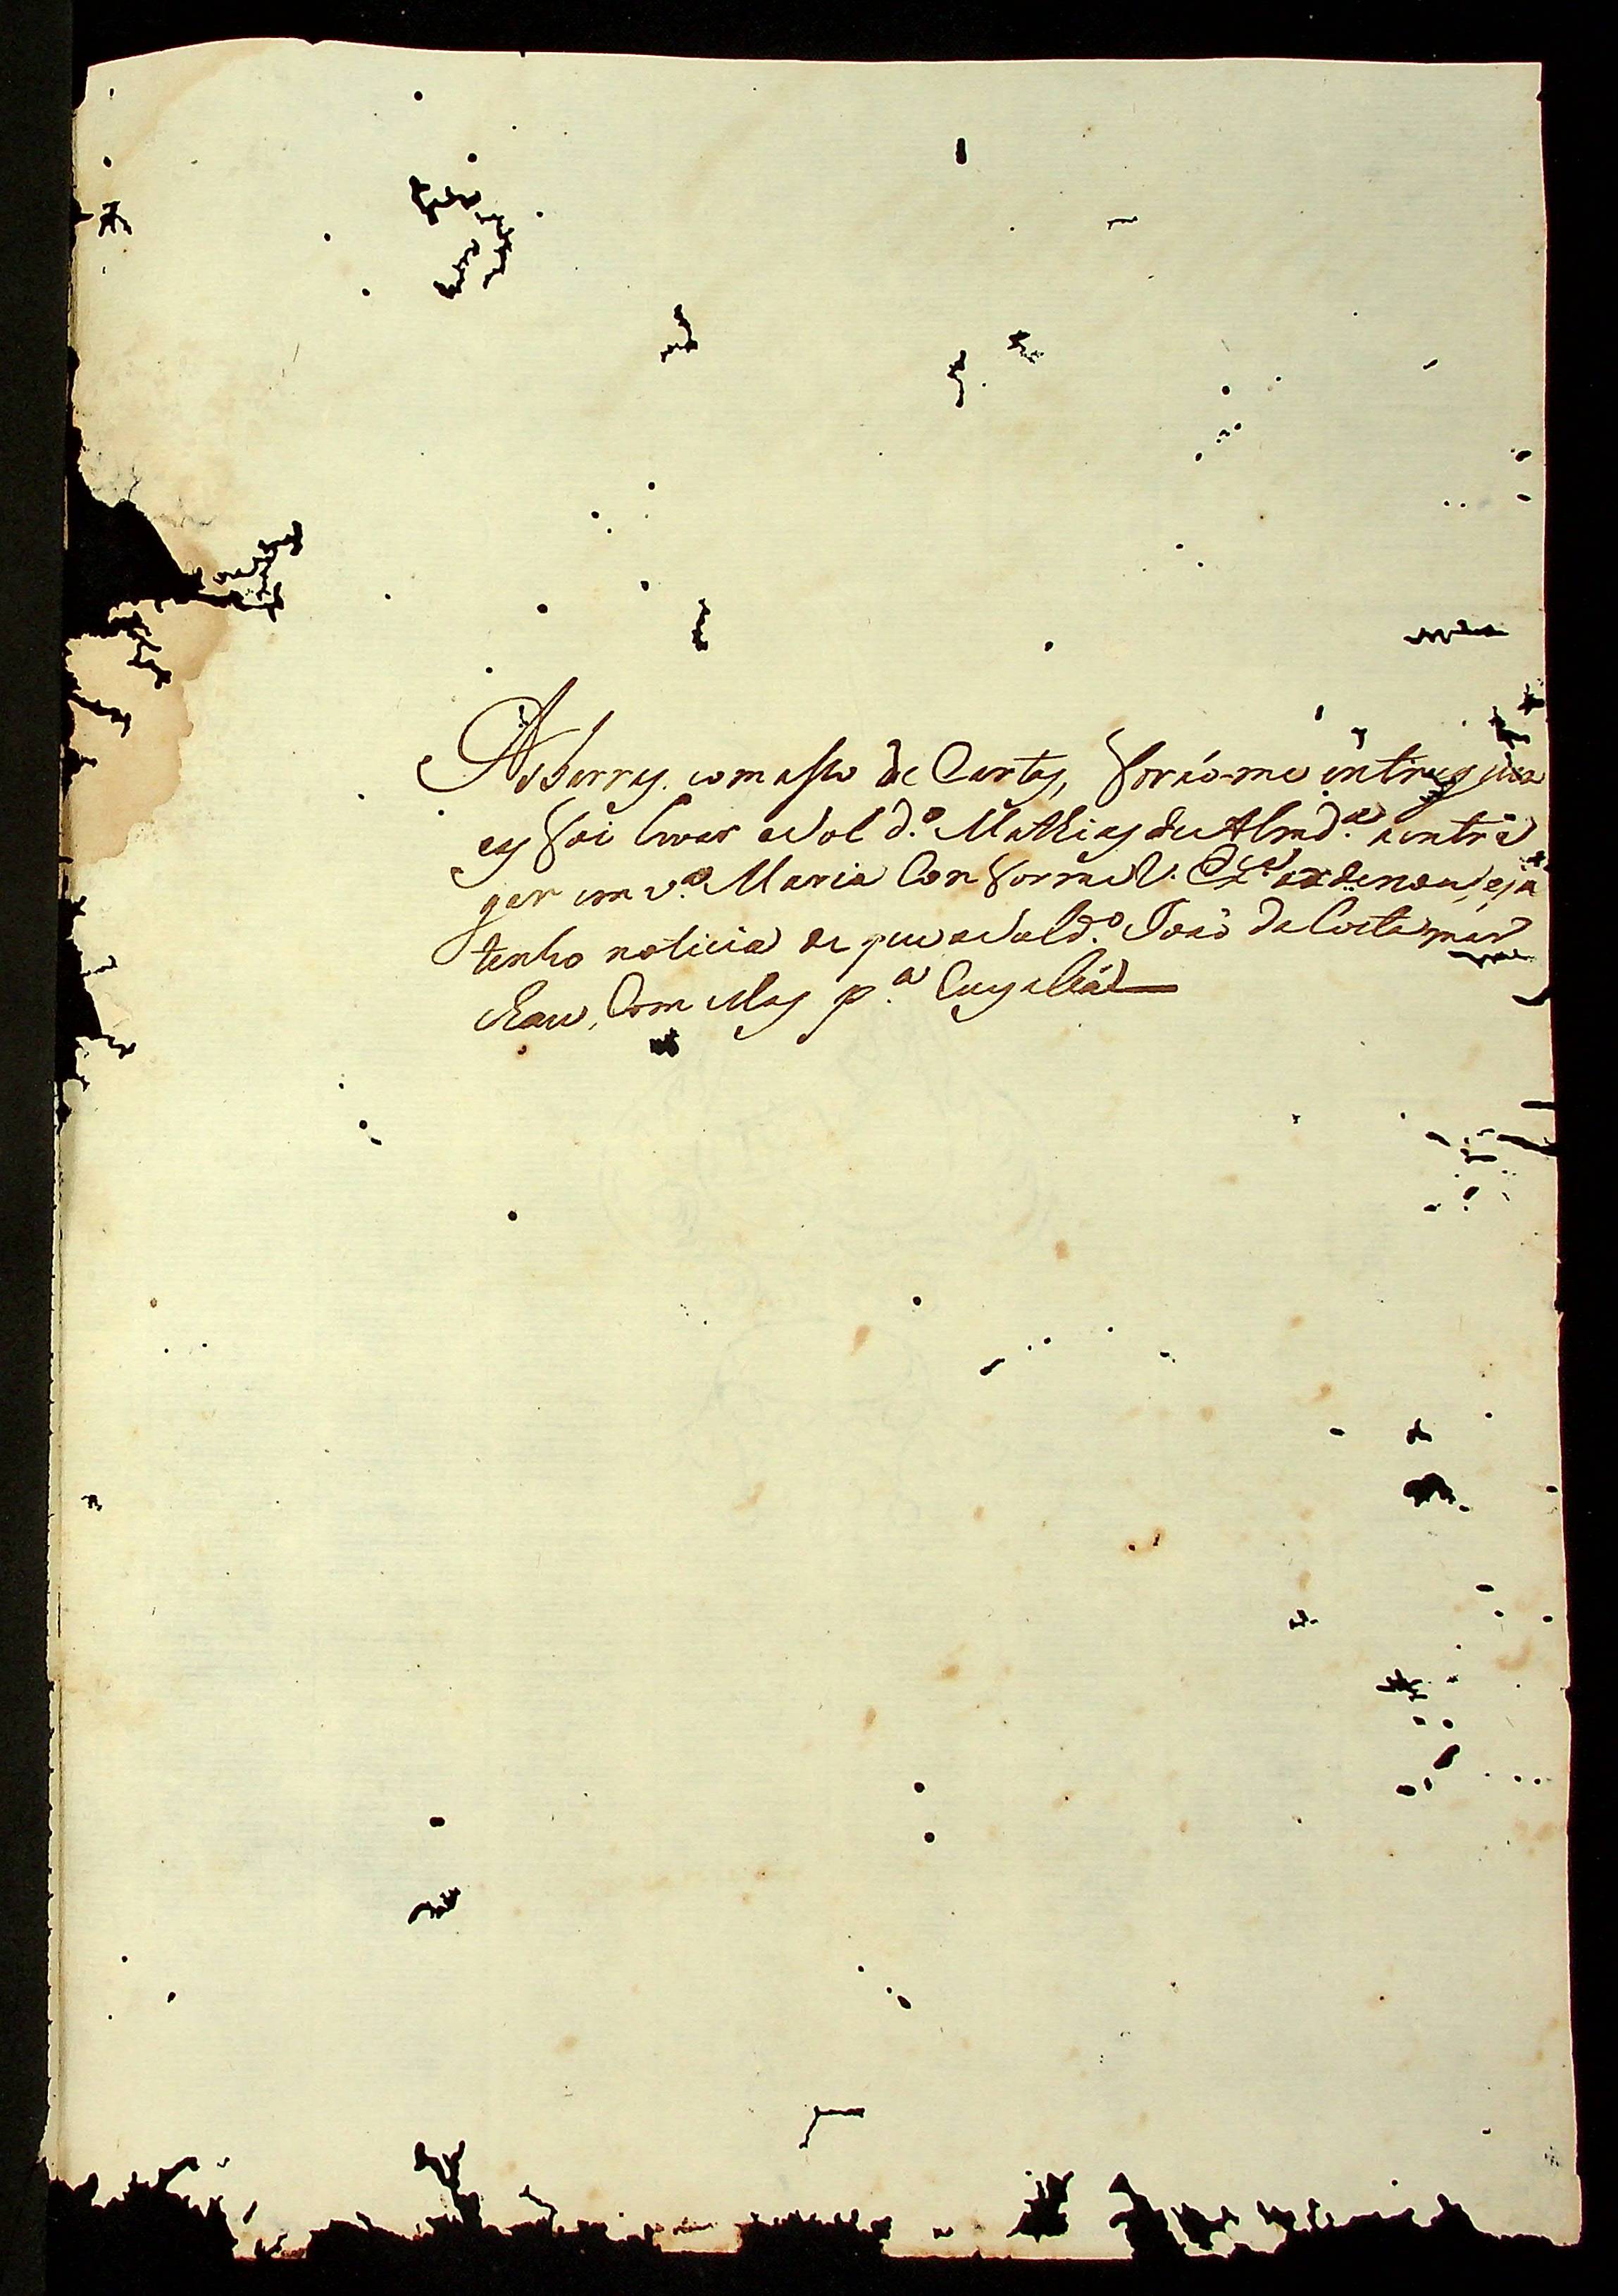 As Barras com asso de Cartas, forão-me entregues
as foi levar o Sold.º Mathias de Almd.ª a entre
gar em v.ª Maria Conforme V. Ex.ª ordenou, e já
tenho noticia de que o Sold.º João da Costa mar
chou, com